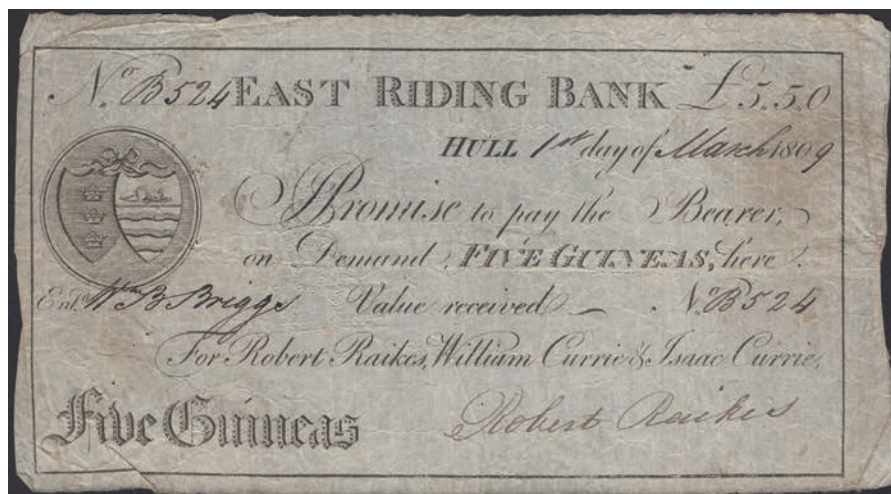 No. B524 EAST RIDING BANK £5.5.0
HULL 1st day of March 1809
I Promise to pay the Bearer,
on Demand, FIVE GUINEAS, here.
Entd. Wm B Briggs Value received No. B524
For Robert Raikes, William Currie & Isaac Currie,
Five Guineas Robert Raikes